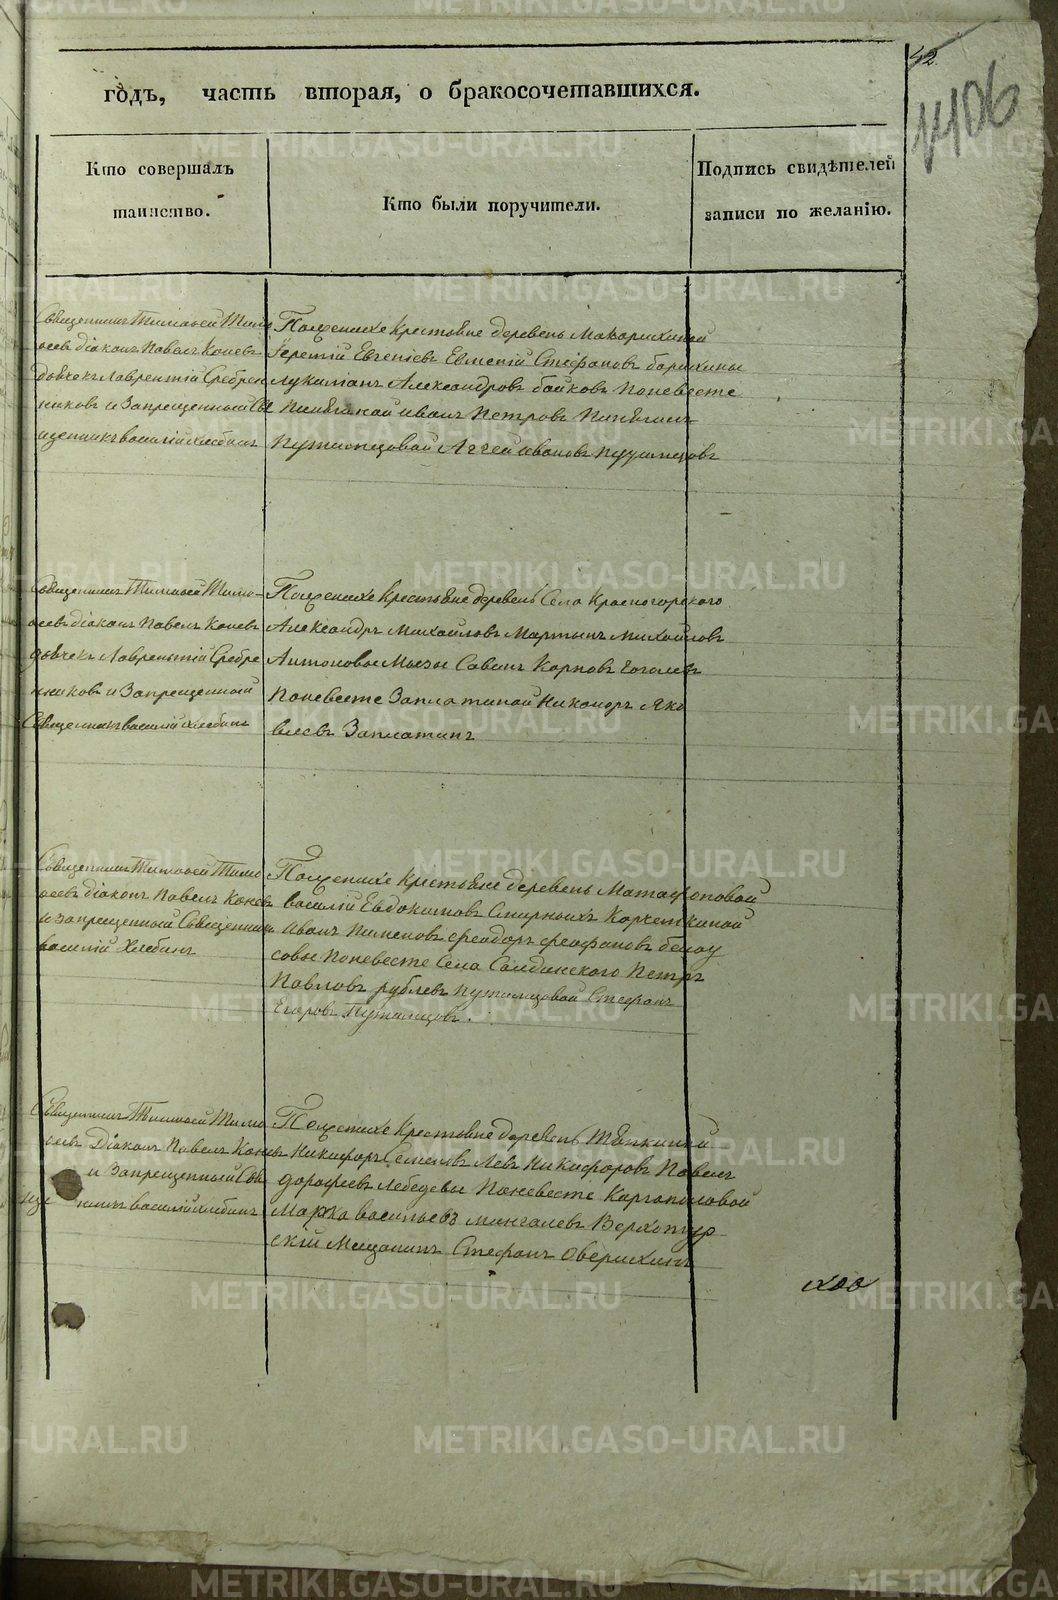 42
1406
годъ, часть вторая, о бракосочетавшихся.
Кто совершалъ
таинство.
Кто были поручители.
Подпись свидѣтелей
записи по желанію.
Священникъ Тимоѳей Тимо
ѳеевъ діаконъ Павелъ Коневъ
дьячекъ Лаврентій Сребрен
никовъ и Запрещенный Св
ященникъ василій хлебинъ
Поженихе Крестьяне деревень Макарихиной
Терентій Евгеніевъ Евгеній Стефановъ
лукиянъ Александровъ байковъ Поневесте
иванъ Петровъ
Аггей ивановъ
Священникъ Тимоѳей Тимо-
ѳеевъ діаконъ Павелъ Коневъ
дьячекъ Лаврентій Сребре
нниковъ и Запрещенной
Священникъ василій хлебинъ
Поженихе Крестьяне деревень Села Красногорского
Александръ Михайловъ Мартынъ Михайловъ
Антоновы Савинъ Карповъ Гоголевъ
Поневесте Заплатиной Никаноръ Яко
влевъ Заплатинъ
Священникъ Тимоѳей Тимо
ѳеевъ діаконъ Павелъ Коневъ
и запрещенный Священникъ
василій Хлебинъ
Поженихе Крестьяне деревень Матафоновой
василій Евдокимовъ Смирныхъ
Иванъ Пименовъ Феодоръ Феофановъ белоу
совы Поневесте Села Салдинского Петръ
Павловъ рублевъ Путимцовой Стефанъ
Егоровъ Путимцовъ.
Священникъ Тимоѳей Тимо
ѳеевъ Діаконъ Павелъ Коневъ
и Запрещенный Свя
ще нникъ василій хлебинъ
Поженихе Крестьяне деревень
Никифоръ Семеновъ Левъ Никифоровъ Павелъ
дорофеевъ Лебедевы Поневесте Каргаполовой
Марко васильевъ мингалевъ Верхотур
скій Мещанинъ Стефанъ
METRIKI.GASO-URAL.RU